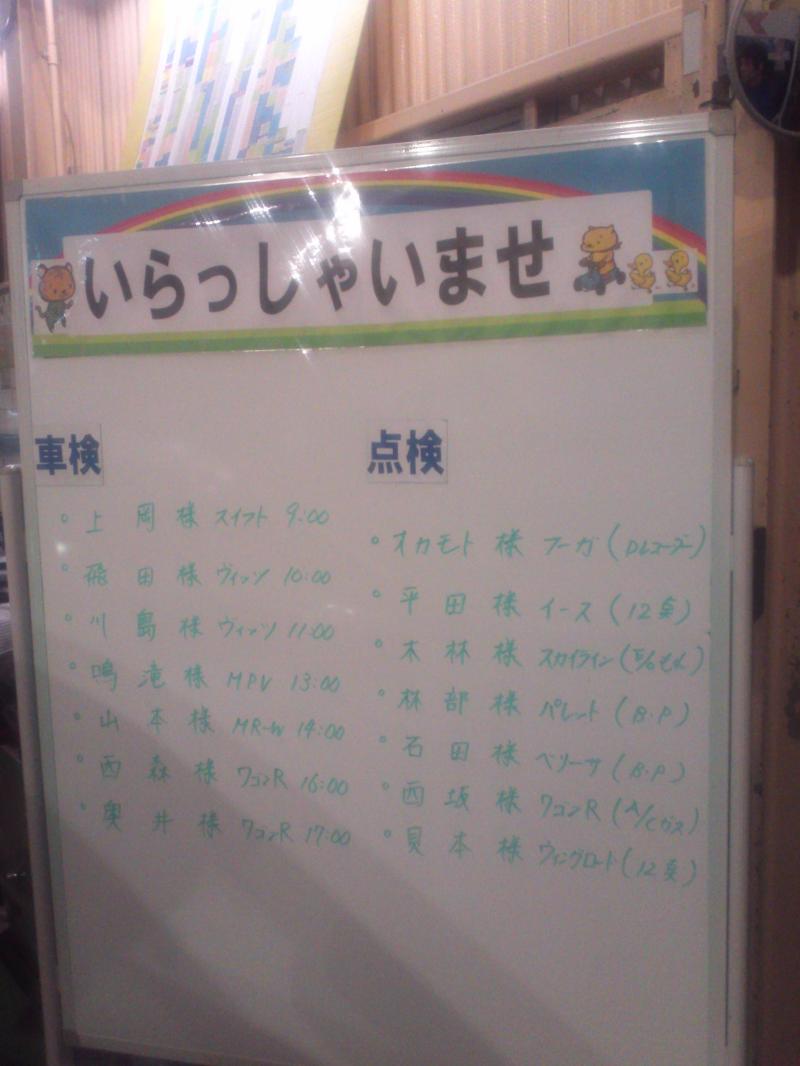 いらっしゃいませ
車検
・上岡様 スイフト 9:00
・飛田様 ヴィッツ 10:00
・川島様 ヴィッツ 11:00
・鳴滝様 MPV 13:00
・山本様 MR-W 14:00
・西森様 ワゴンR 16:00
・奥井様 ワゴンR 17:00
点検
・オカモト様 フーガ(Dレコーダー)
・平田様 イース(12点)
・木林様 スカイライン(
・林部様 パレット(B.P)
・石田様 ベリーサ(B.P)
・西坂様 ワゴンR(A/Cガス)
・貝本様 ウィングロード(12点)